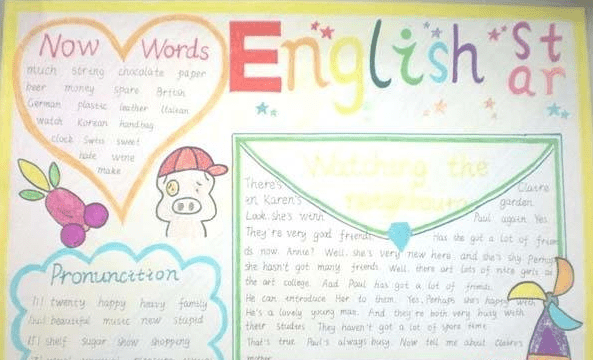 Now Words
much string chocolate paper
beer money spare British
German plastic leather Italian
watch Korean handbag
clock Swiss sweet
hate wine
make
English
St
ar
Watching the
neighbours
There's Claire
in Karen's garden.
Look, she's with Paul again. Yes.
They're very good friends. Has she got a lot of frien
ds now, Annie? Well, she's very new here, and she's shy. Perhaps
she hasn't got many friends. Well, there are lots of nice girls at
the art college. And Paul has got a lot of friends.
He can introduce Her to them. Yes, Perhaps she's happy with
He's a lovely young man. And they're both very busy with
their studies. They haven't got a lot of spare time.
That's true. Paul's always busy. Now tell me about Claire's
mother.
Pronuncition
twenty happy heavy family
beautiful music new stupid
shelf sugar show shopping